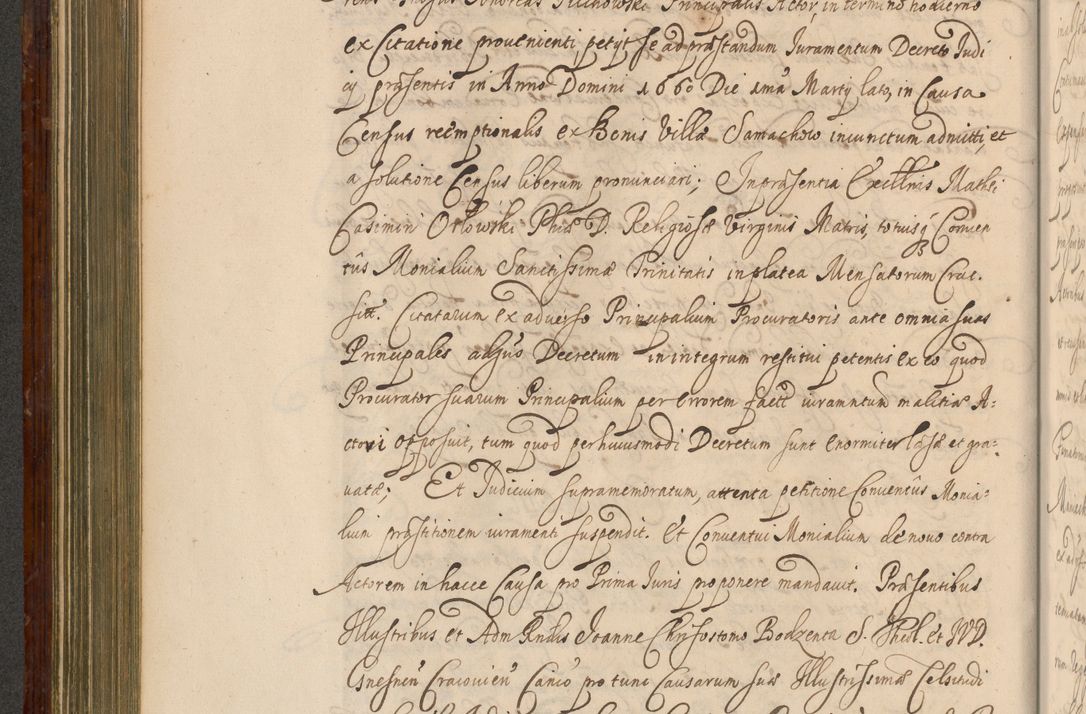 Andreas Piechowski Principalis Actor, in termino hodierno
ex Citatione provenienti petyt se ad præstandum Iuramentum Decreto Iudi
cij præsentis in Anno Domini 1660 Die 1ma Martij lato, in Causa
Census reemptionalis ex Bonis Villæ Samachow iniunctum admitti, et
a solutione Census liberum pronunciari; In præsentia Excellntis Mathei
Casimiri Orłowski Phiæ D. Religiosæ Virginis Matris, totiusq Conven
tûs Monialium Sanctissimæ Trinitatis in platea Mensatorum Crac.
sitt. Citatarum ex adverso Principalium Procuratoris ante omnia suas
Principales adversus Decretum in integrum restitui petentis ex eo quod
Procurator suarum Principalium per errorem facti iuramntum malitiæ A-
ctori opposuit, tum quod per huiusmodi Decretum sunt enormiter læsæ et gra-
vatæ; Et Iudicium supramemoratum, attenta petitione Conventûs Monia-
lium præstitionem iuramenti suspendit. Et Conventui Monialium de novo contra
Actorem in hacce Causa pro Prima Iuris proponere mandavit. Præsentibus
Illustribus et Adm Rndis Ioanne Chrisostomo Bodzenta S. Theol. et IVD.
Gnesnen Cracovien Canco pro tunc Causarum suæ Illustrissimæ Celsitudi